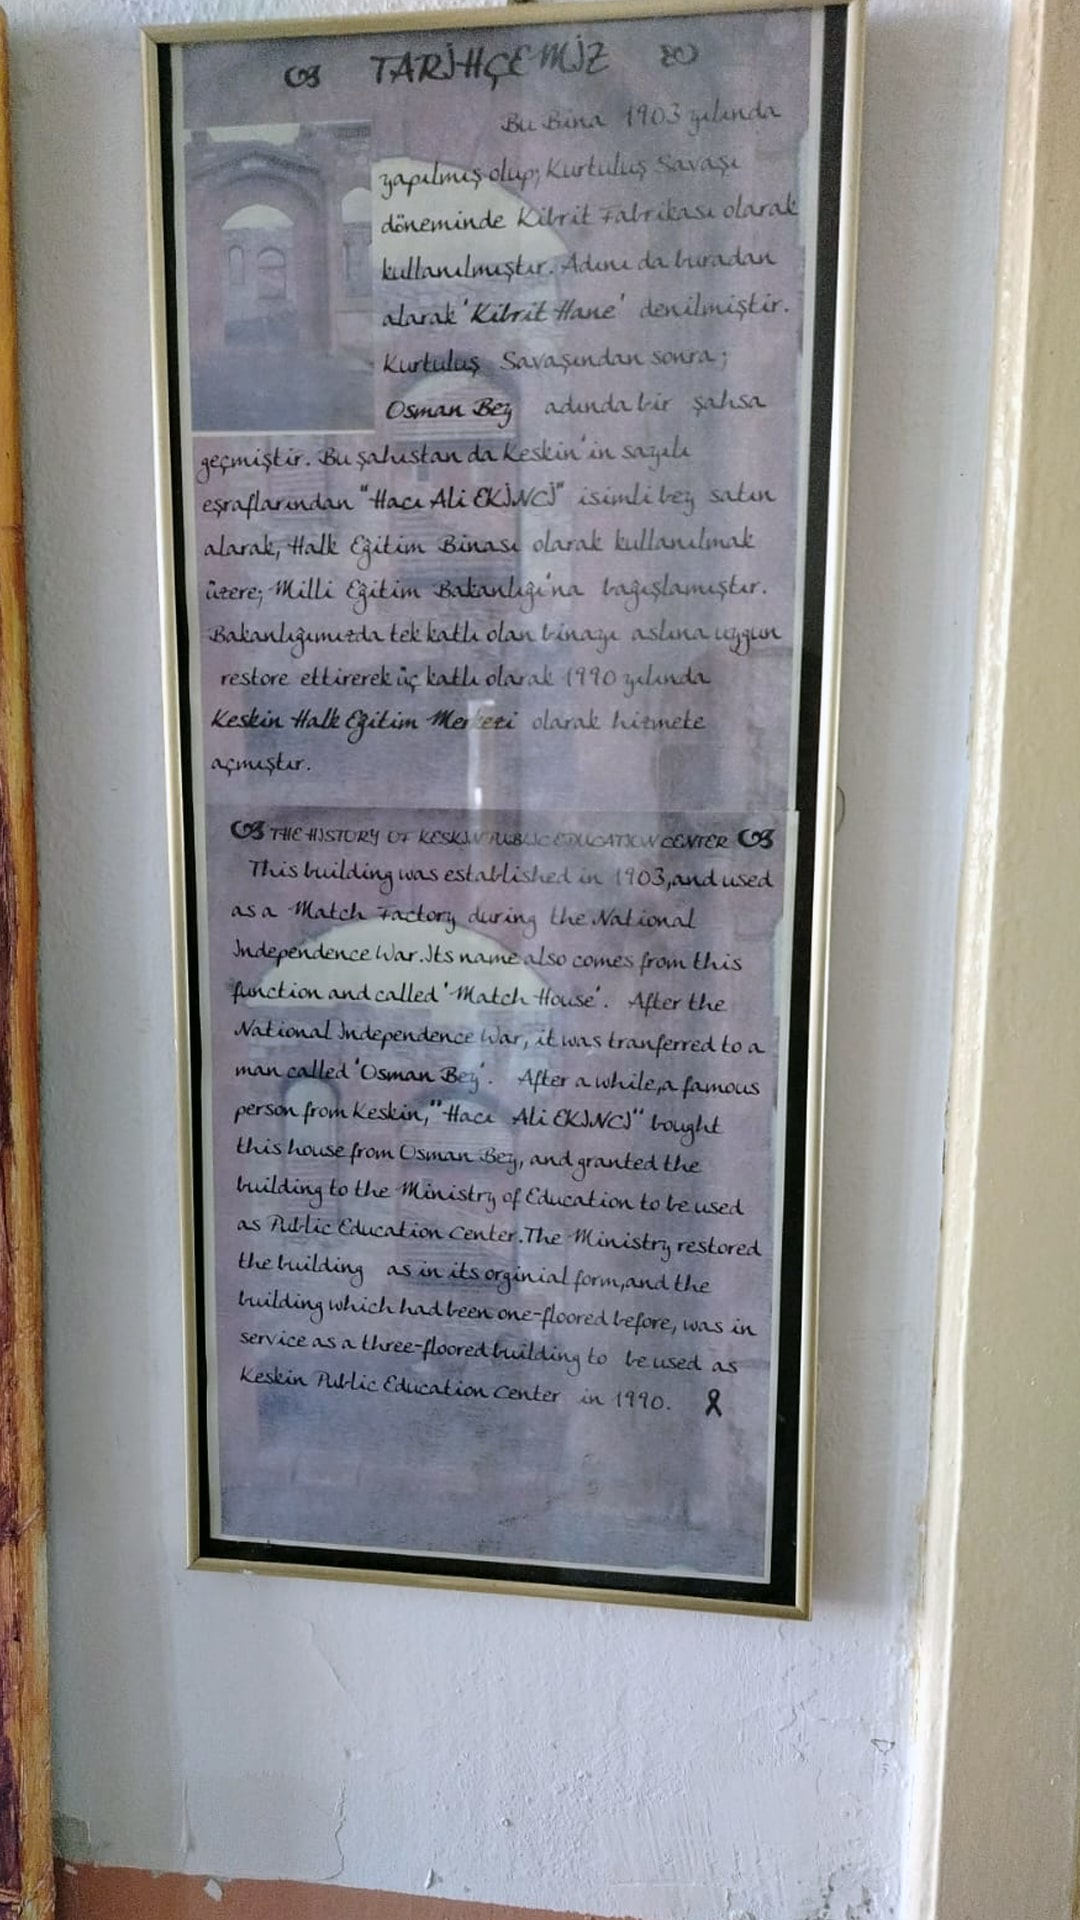 TARİHÇEMİZ
Bu Bina 1903 yılında
yapılmış olup; Kurtuluş Savaşı
döneminde Kibrit Fabrikası olarak
kullanılmıştır. Adını da buradan
alarak 'Kibrit Hane' denilmiştir.
Kurtuluş Savaşından sonra;
Osman Bey adında bir şahsa
geçmiştir. Bu şahıstan da Keskin'in sayılı
eşraflarından "Hacı Ali EKİNCİ" isimli bey satın
alarak, Halk Eğitim Binası olarak kullanılmak
üzere; Milli Eğitim Bakanlığı'na bağışlamıştır.
Bakanlığımızda tek katlı olan binayı aslına uygun
restore ettirerek üç katlı olarak 1990 yılında
Keskin Halk Eğitim Merkezi olarak hizmete
açmıştır.
THE HISTORY OF KESKIN PUBLIC EDUCATION CENTER
This building was established in 1903,and used
as a Match Factory during the National
Independence War.Its name also comes from this
function and called 'Match House'. After the
National Independence War, it was tranferred to a
man called 'Osman Bey'. After a while,a famous
person from Keskin,"Hacı Ali EKİNCİ" bought
this house from Osman Bey, and granted the
building to the Ministry of Education to be used
as Public Education Center.The Ministry restored
the building as in its orginial form,and the
building which had been one-floored before, was in
service as a three-floored building to be used as
Keskin Public Education Center in 1990.